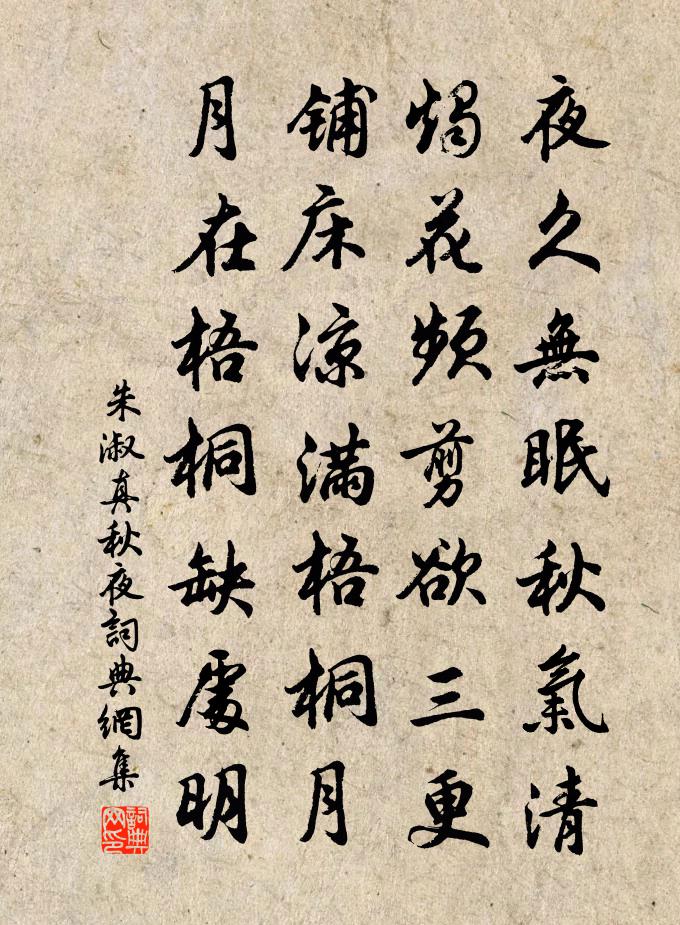 夜久無眠秋氣清
燭花頻剪欲三更
鋪床涼滿梧桐月
月在梧桐缺處明
朱淑真秋夜詞典網集
詞典網印